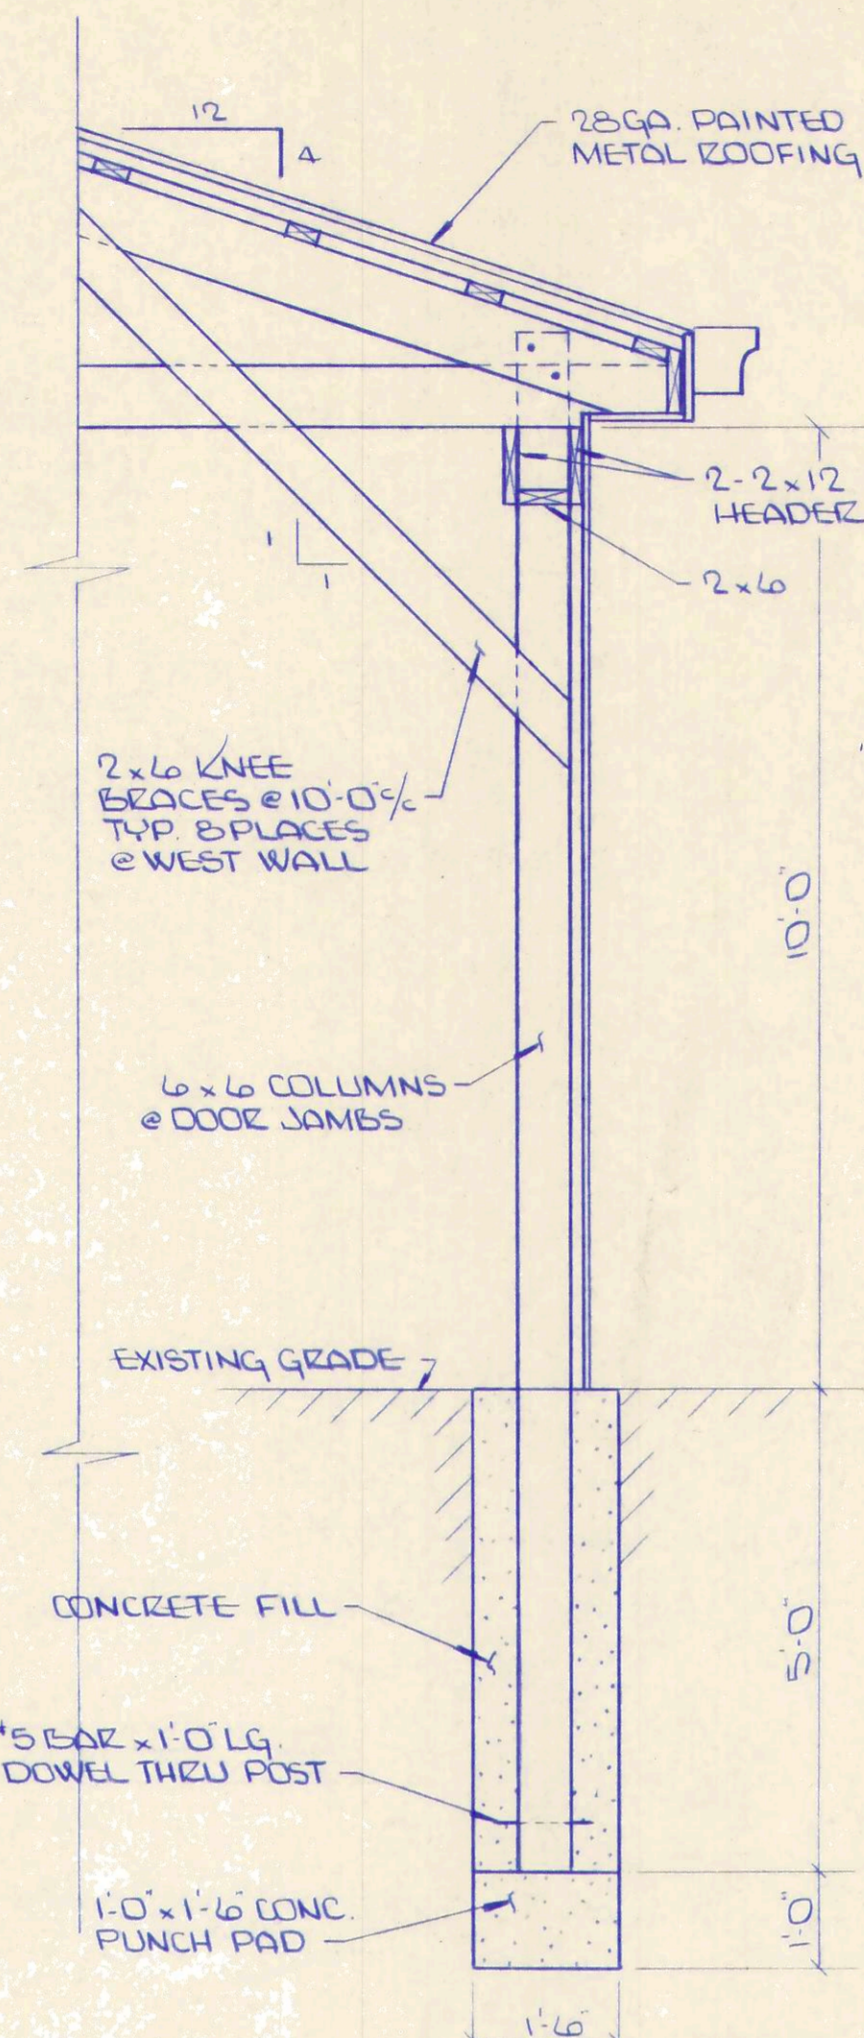 12
4
28GA. PAINTED
METAL ROOFING
2-2x12
HEADER
1
1
2x6
2x6 KNEE
BRACES @ 10'-0" c/c
TYP. 8 PLACES
@ WEST WALL
10'-0"
6x6 COLUMNS
@ DOOR JAMBS
EXISTING GRADE
CONCRETE FILL
5'-0"
#5 BAR x 1'-0" LG.
DOWEL THRU POST
1'-0" x 1'-6" CONC.
PUNCH PAD
1'-0"
1'-6"